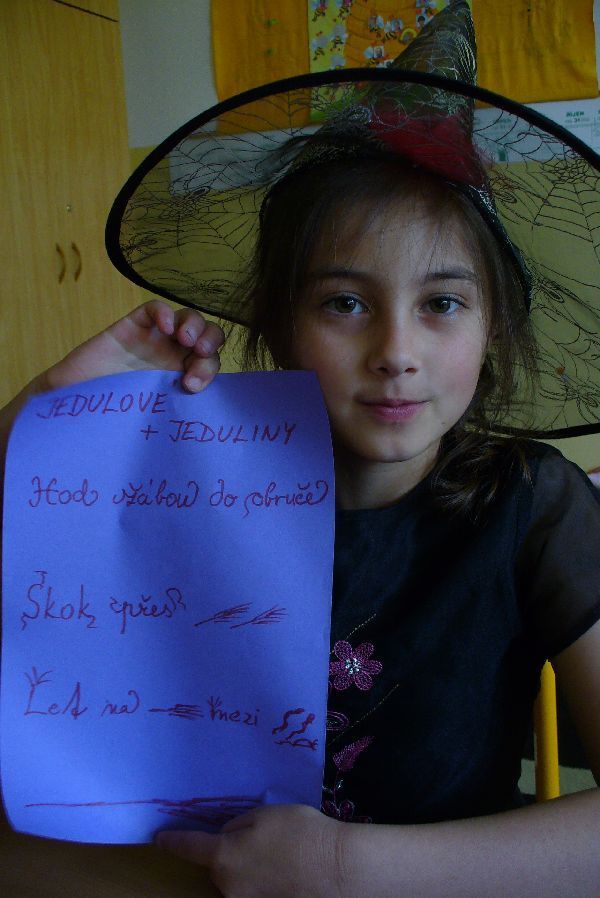 JEDULOVE
+ JEDULINY
Hod vžábou do obruče
Skok přes
Let na mezi
ŘÍJEN